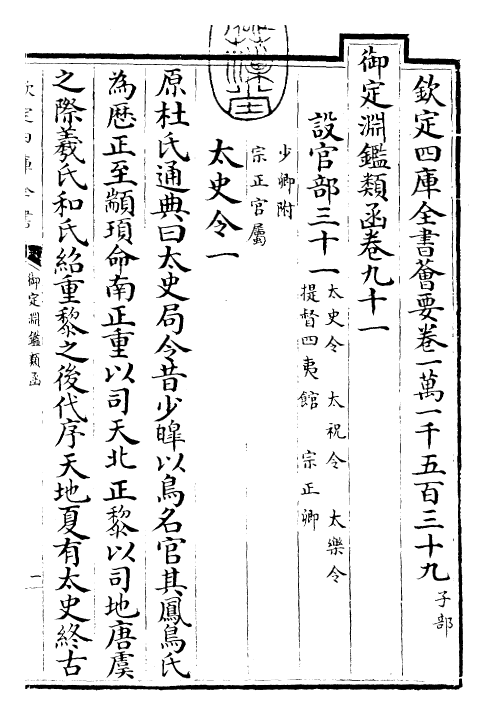 欽定四庫全書薈要卷一萬一千五百三十九 子部
御定淵鑑類函卷九十一
設官部三十一 太史令 太祝令 太樂令
提督四夷館 宗正卿
少卿附
宗正官屬
太史令一
原杜氏通典曰太史局令昔少皥以鳥名官其鳳鳥氏
為歴正至顓頊命南正重以司天北正黎以司地唐虞
之際羲氏和氏紹重黎之後代序天地夏有太史終古
欽定四庫全書
御定淵鑑類函